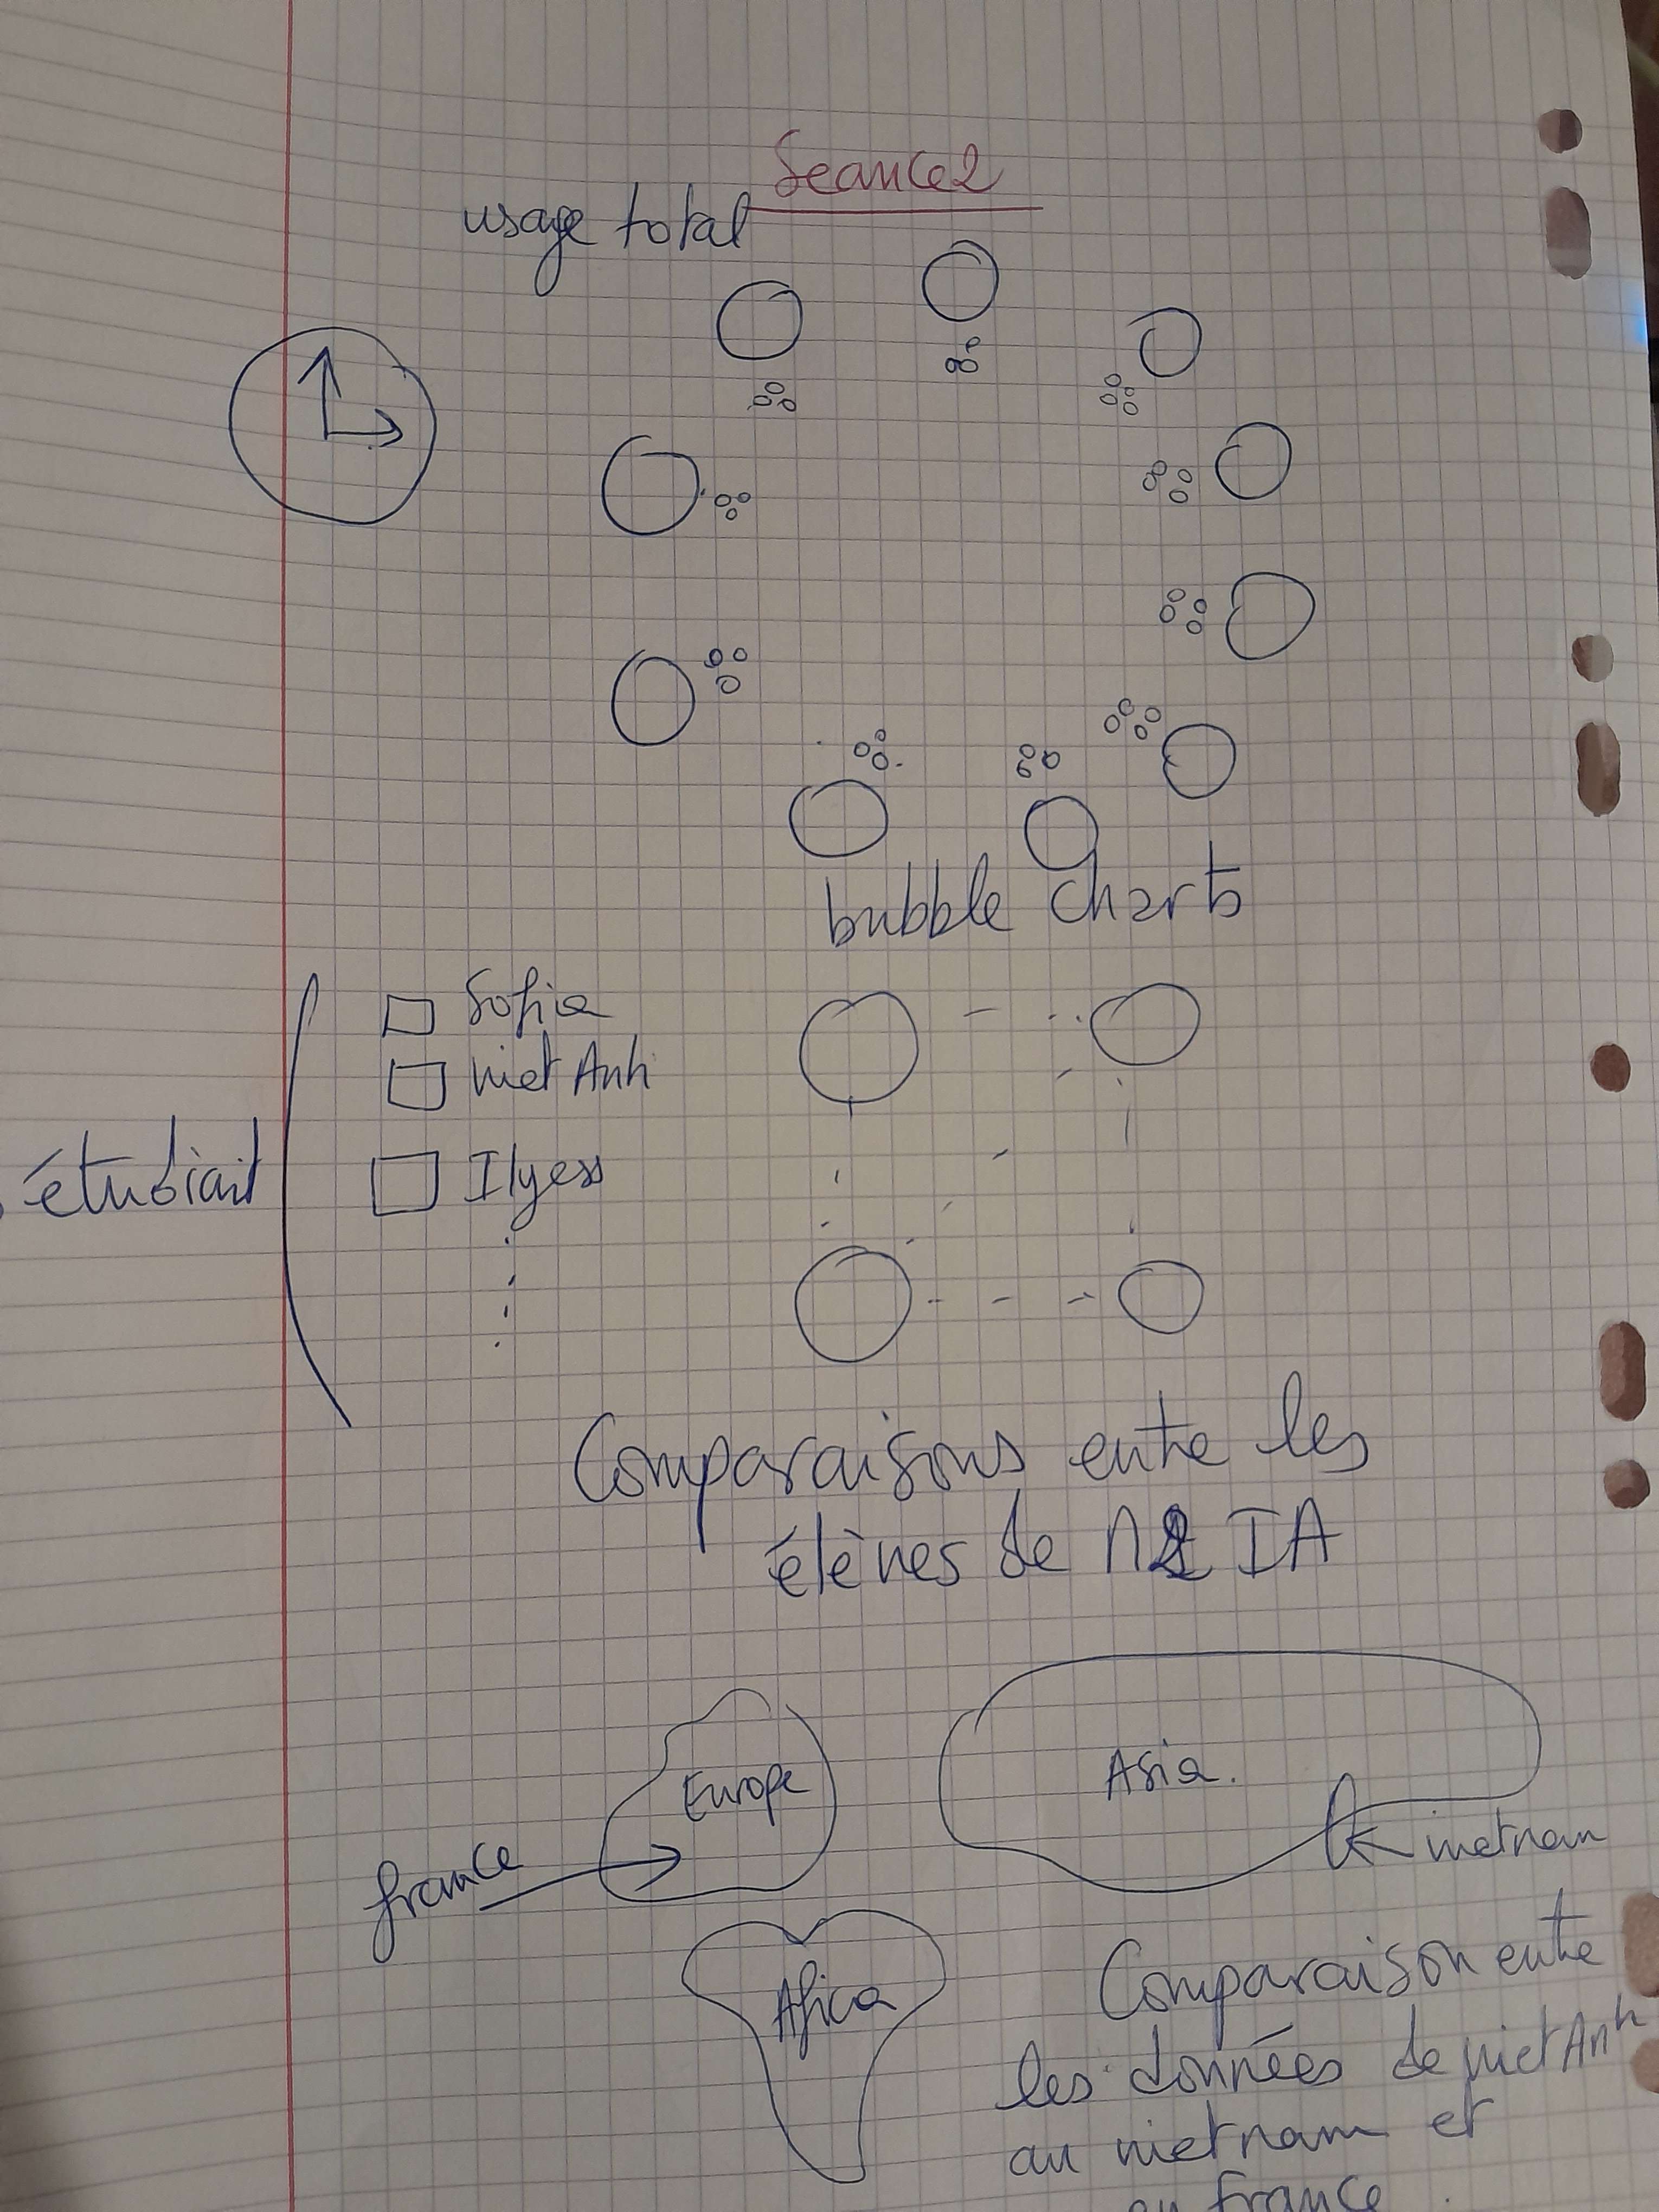 Seance2
usage total
bubble charts
Sofia
Viet Anh
Ilyess
étudiant
Comparaisons entre les
élèves de IA
Europe
Asia.
france
vietnam
Africa
Comparaison entre
les données de viet Anh
au vietnam et
en france